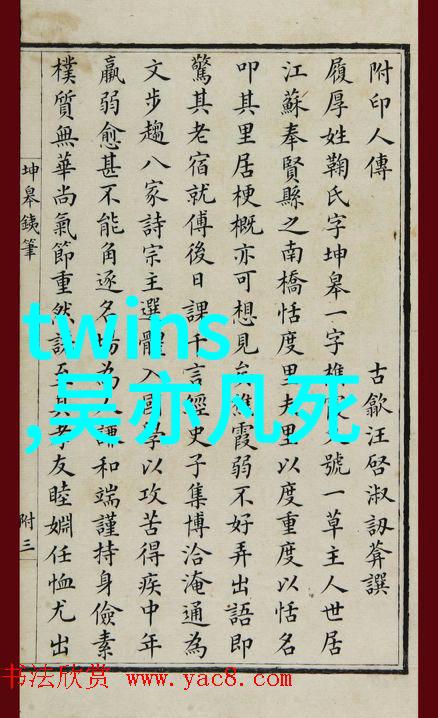 附印人傳 古歙汪啓淑訒葊譔
履厚姓鞠氏字坤皋一字樵霞號一草主人世居
江蘇奉賢縣之南橋恬度里夫里以度重度以恬名
叩其里居梗概亦可想見矣樵霞弱不好弄出語即
驚其老宿就傅後日課千言經史子集博洽淹通為
文步趨八家詩宗主選體入邑學以攻苦得疾中年
羸弱愈甚不能角逐名場為人謙和端謹持身儉素
樸質無華尚氣節重然諾至其孝友睦婣任恤尤出
坤皋鐵筆
附三
twins
,吴亦凡死
书法欣赏 www.yac8.com